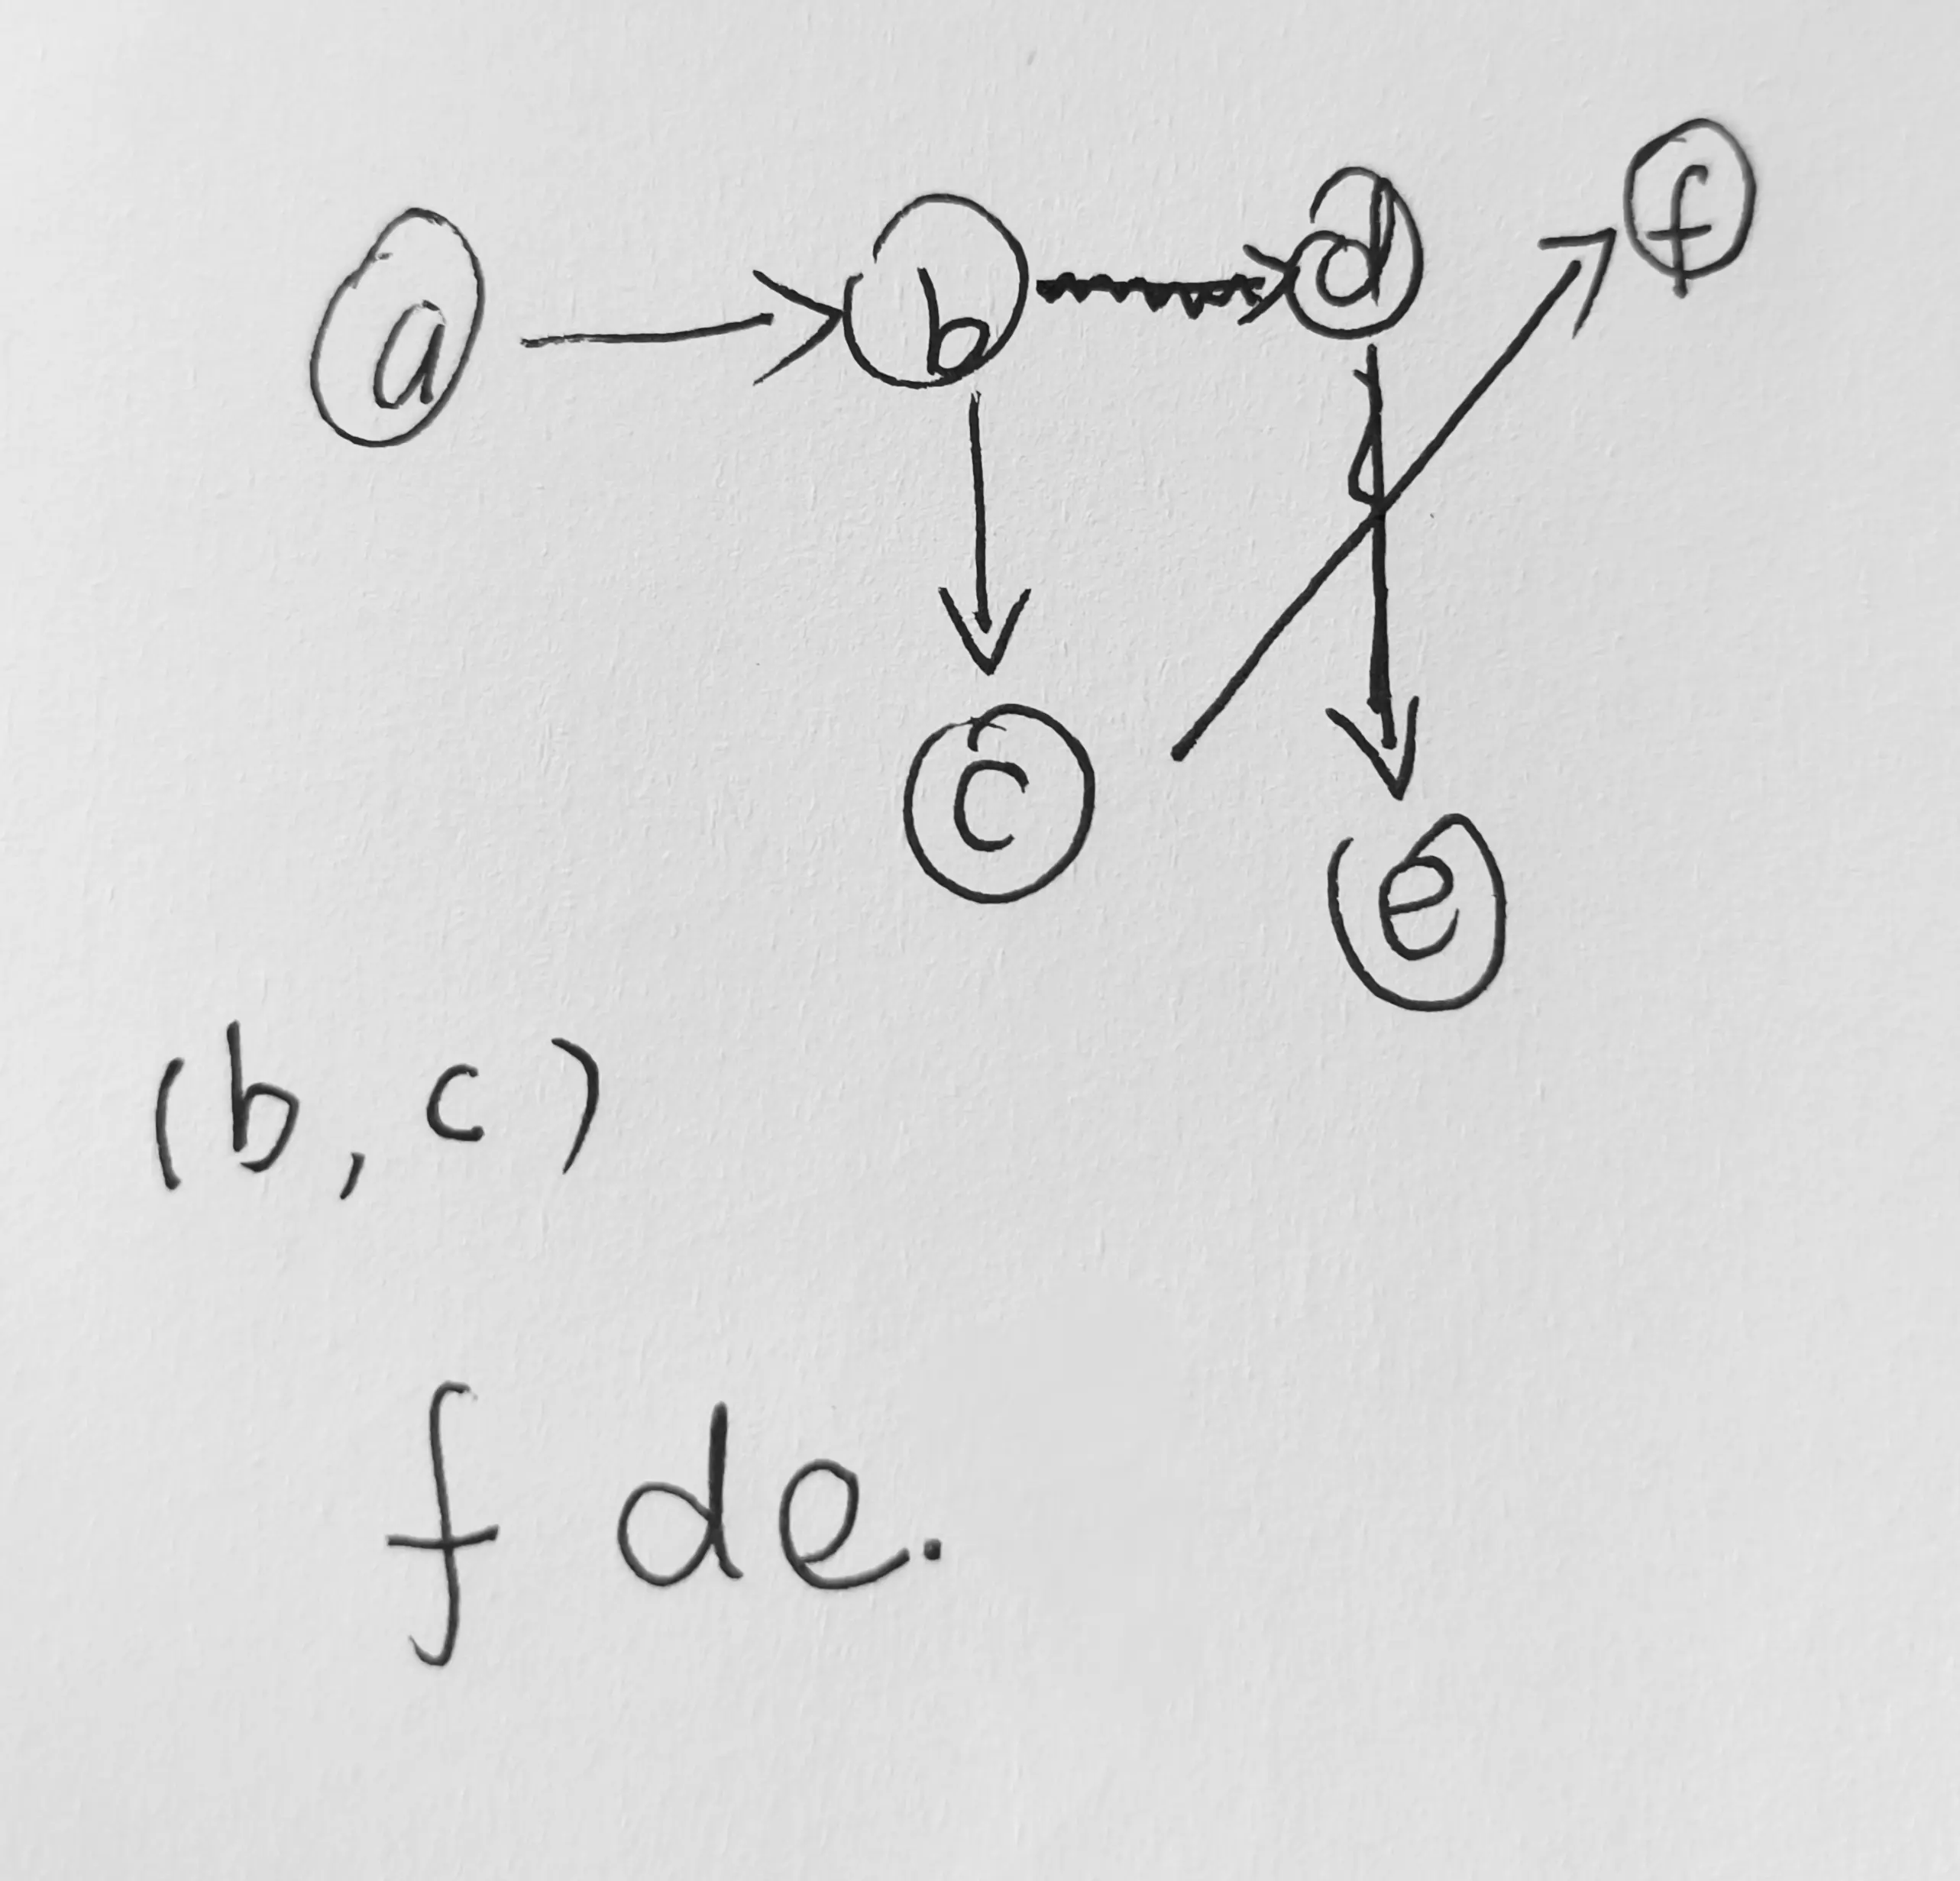 a b d f
c e
(b, c)
f de.